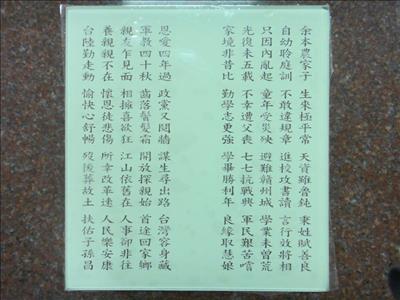 余本農家子 生來極平常 天資雖魯鈍 秉姓賦善良
自幼聆庭訓 不敢違規章 進校攻書讀 言行效將相
只因內亂起 童年受災殃 避難贛州城 學業未曾荒
光復未五載 不幸遭父喪 七七抗戰興 軍民艱苦嚐
家境非昔比 勤學志更強 學畢勝利年 良緣取慧娘
恩愛四年過 政黨又鬩牆 謀生尋出路 台灣容身藏
軍教四十秋 齒落鬢髮霜 開放探親始 首途回家鄉
親友乍見面 相擁喜欲狂 江山依舊在 人事卻非往
養親親不在 懷恩徒悲傷 所幸改革速 人民樂安康
台陸勤走動 愉快心舒暢 歿後葬故土 扶佑子孫昌